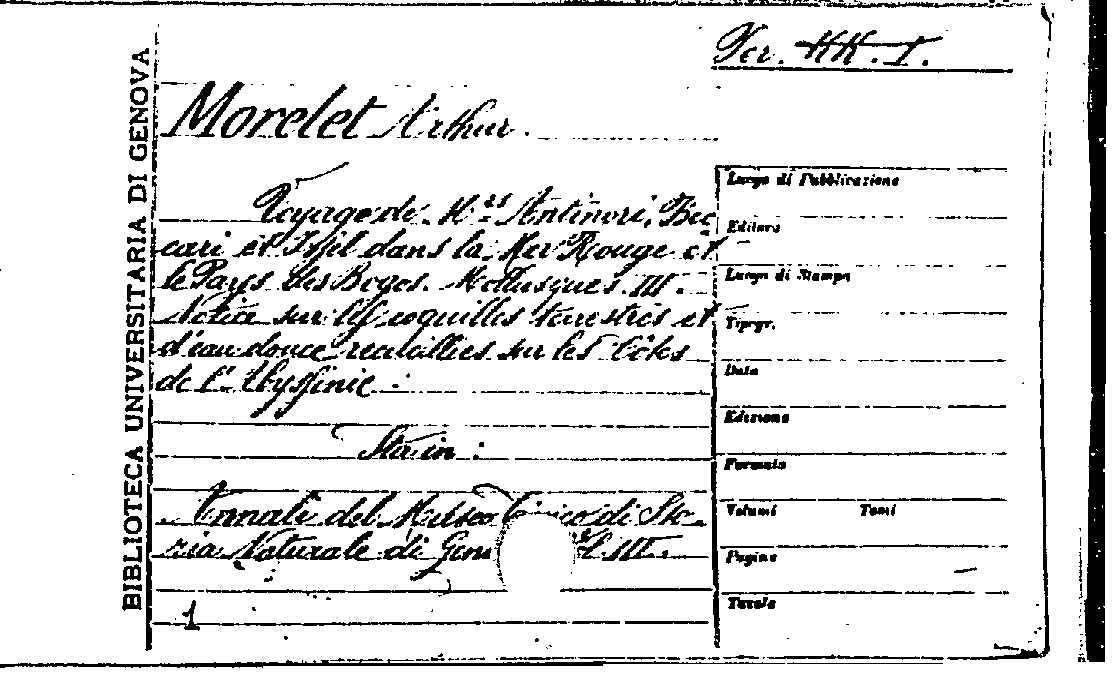 BIBLIOTECA UNIVERSITARIA DI GENOVA
Per. KK. I.
Morelet Arthur.
Voyage de M.rs Antinori, Bec
cari et Issel dans la Mer Rouge et
le Pays des Bogos. Mollusques. III.
Notice sur les coquilles terrestres et
d'eau douce recueillies sur les Côtes
de l'Abyssinie:
Sta in:
Annali del Museo Civico di Sto-
ria Naturale di Gen III.
1
Luogo di Pubblicazione
Editore
Luogo di Stampa
Tipogr.
Data
Edizione
Formato
Volumi Tomi
Pagine
Tavole